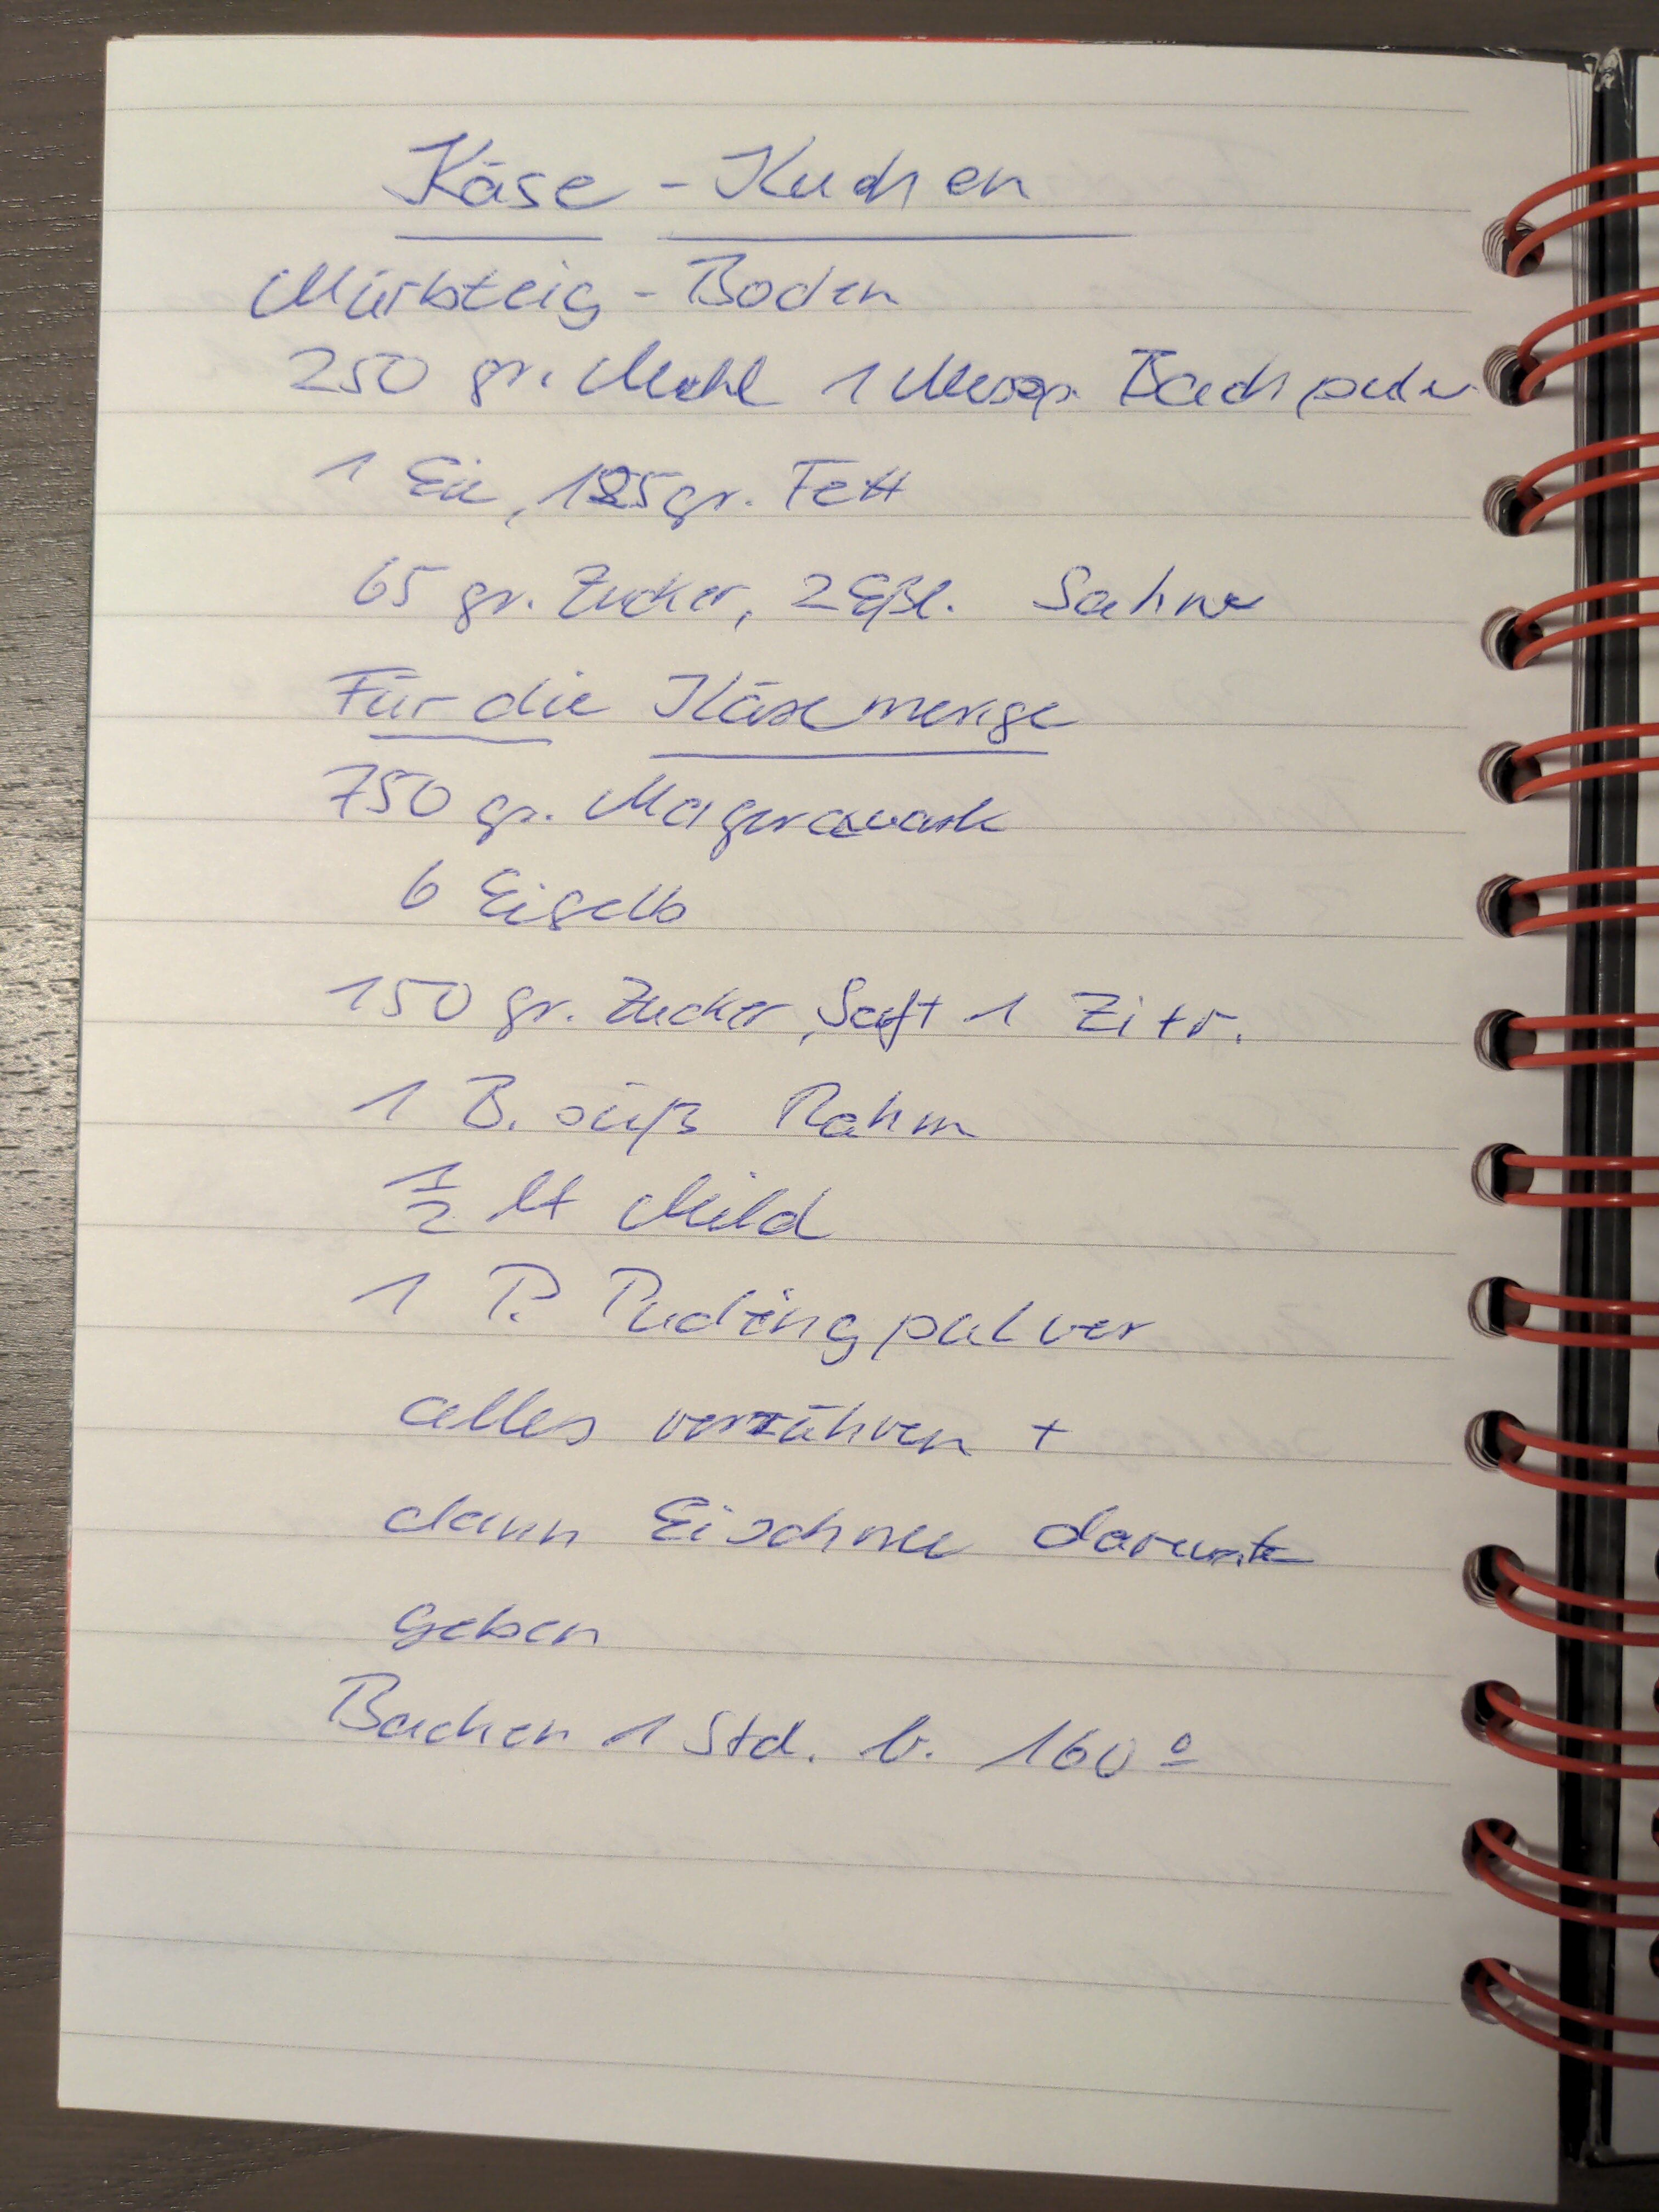 Käse - Kuchen
Mürbteig - Boden
250 gr. Mehl 1 Messp. Backpulv
1 Ei, 125 gr. Fett
65 gr. Zucker, 2 Eßl. Sahne
Für die Käsemenge
750 gr. Magerquark
6 Eigelb
150 gr. Zucker, Saft 1 Zitr.
1 B. süß Rahm
1/2 lt Milch
1 P. Pudingpulver
alles verrühren +
dann Eischnee darunter
geben
Backen 1 Std. b. 160°